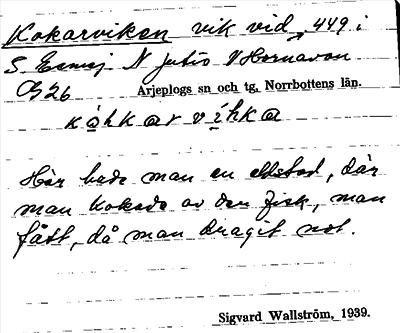 Kokarviken vik vid 449 i
S. N Jutis V Hornavan
Arjeplogs sn och tg, Norrbottens län.
kåhkar vihka
Här hade man en eldstad, där
man kokade av den fisk, man
fått, då man dragit not.
Sigvard Wallström, 1939.